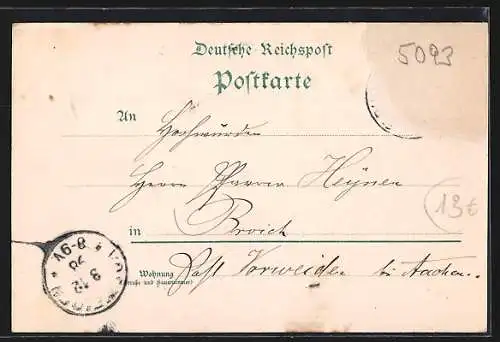 Deutsche Reichspost
Postkarte
5093
An Hochwürden
Herrn Pfarrer Heynen
13€
in Broich
Wohnung
(Straße und Hausnummer)
Post Vorweiden bei Aachen.
8-9V
9 12
98